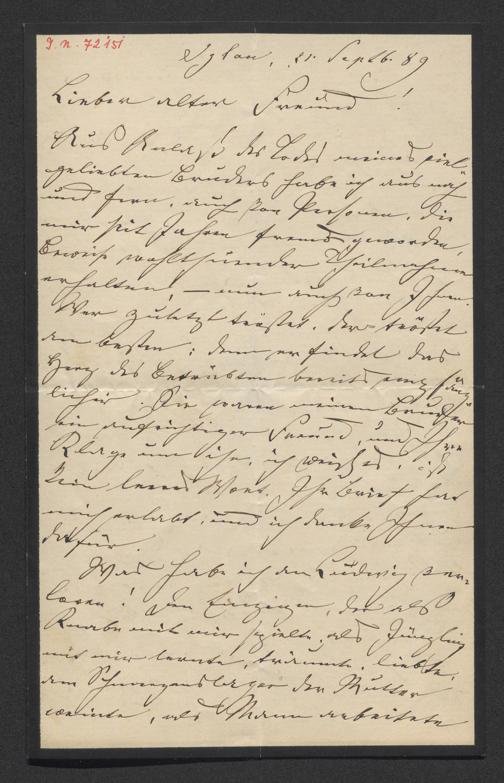 I. n. 72151
Iglau, 21. Septb. 89
Lieber alter Freund!
Aus Anlaß des Todes meines viel-
geliebten Bruders habe ich aus nah
und fern, auch von Personen, die
mir seit Jahren fremd geworden,
Beweise wohlthuender Theilnahme
erhalten, – nun auch von Ihnen.
Wer zuletzt tröstet, der tröstet
am besten; denn er findet das
Herz des Betrübten bereits empfäng-
licher. Sie waren meinem Bruder
ein aufrichtiger Freund, und Ihre
Klage um ihn, ich weiß es, ist
kein leeres Wort. Ihr Brief hat
mich erlabt, und ich danke Ihnen
dafür.
Was habe ich an Ludwig ver-
loren! Den Einzigen, der als
Knabe mit mir spielte, als Jüngling
mit mir lernte, träumte, liebte,
am Schmerzenslager der Mutter
weinte, als Mann arbeitete